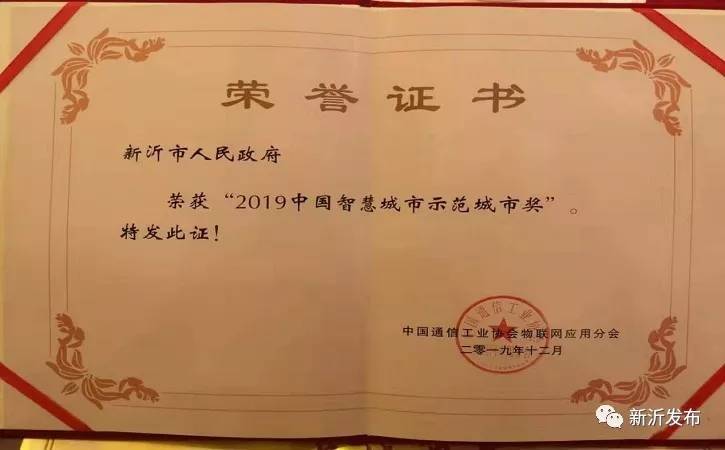 荣誉证书
新沂市人民政府
荣获“2019中国智慧城市示范城市奖”。
特发此证！
中国通信工业协会物联网应用分会
二零一九年十二月
新沂发布